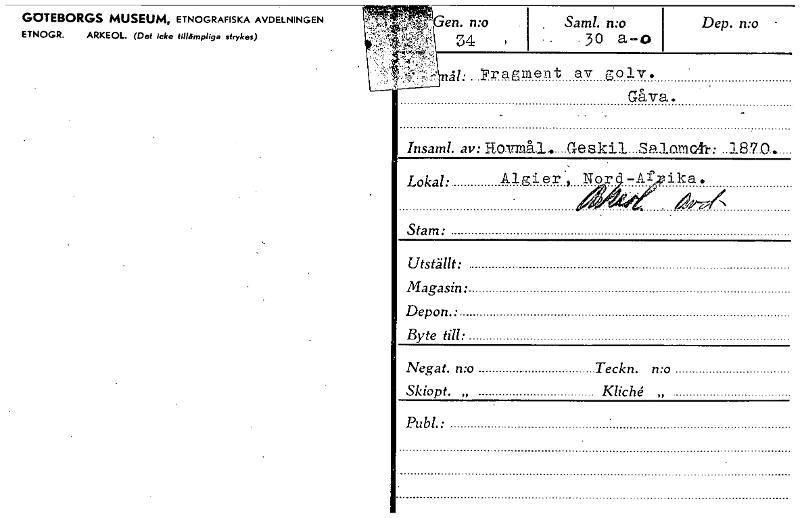 GÖTEBORGS MUSEUM, ETNOGRAFISKA AVDELNINGEN
ETNOGR. ARKEOL. (Det icke tillämpliga strykes)
Gen. n:o Saml. n:o Dep. n:o
34 30 a-o
mål: Fragment av golv.
Gåva.
Insaml. av: Hovmål. Geskil 1870.
Lokal: Algier, Nord-Afrika.
Arkeol. avd.
Stam:
Utställt:
Magasin:
Depon.:
Byte till:
Negat. n:o Teckn. n:o
Skiopt. „ Kliché „
Publ.: